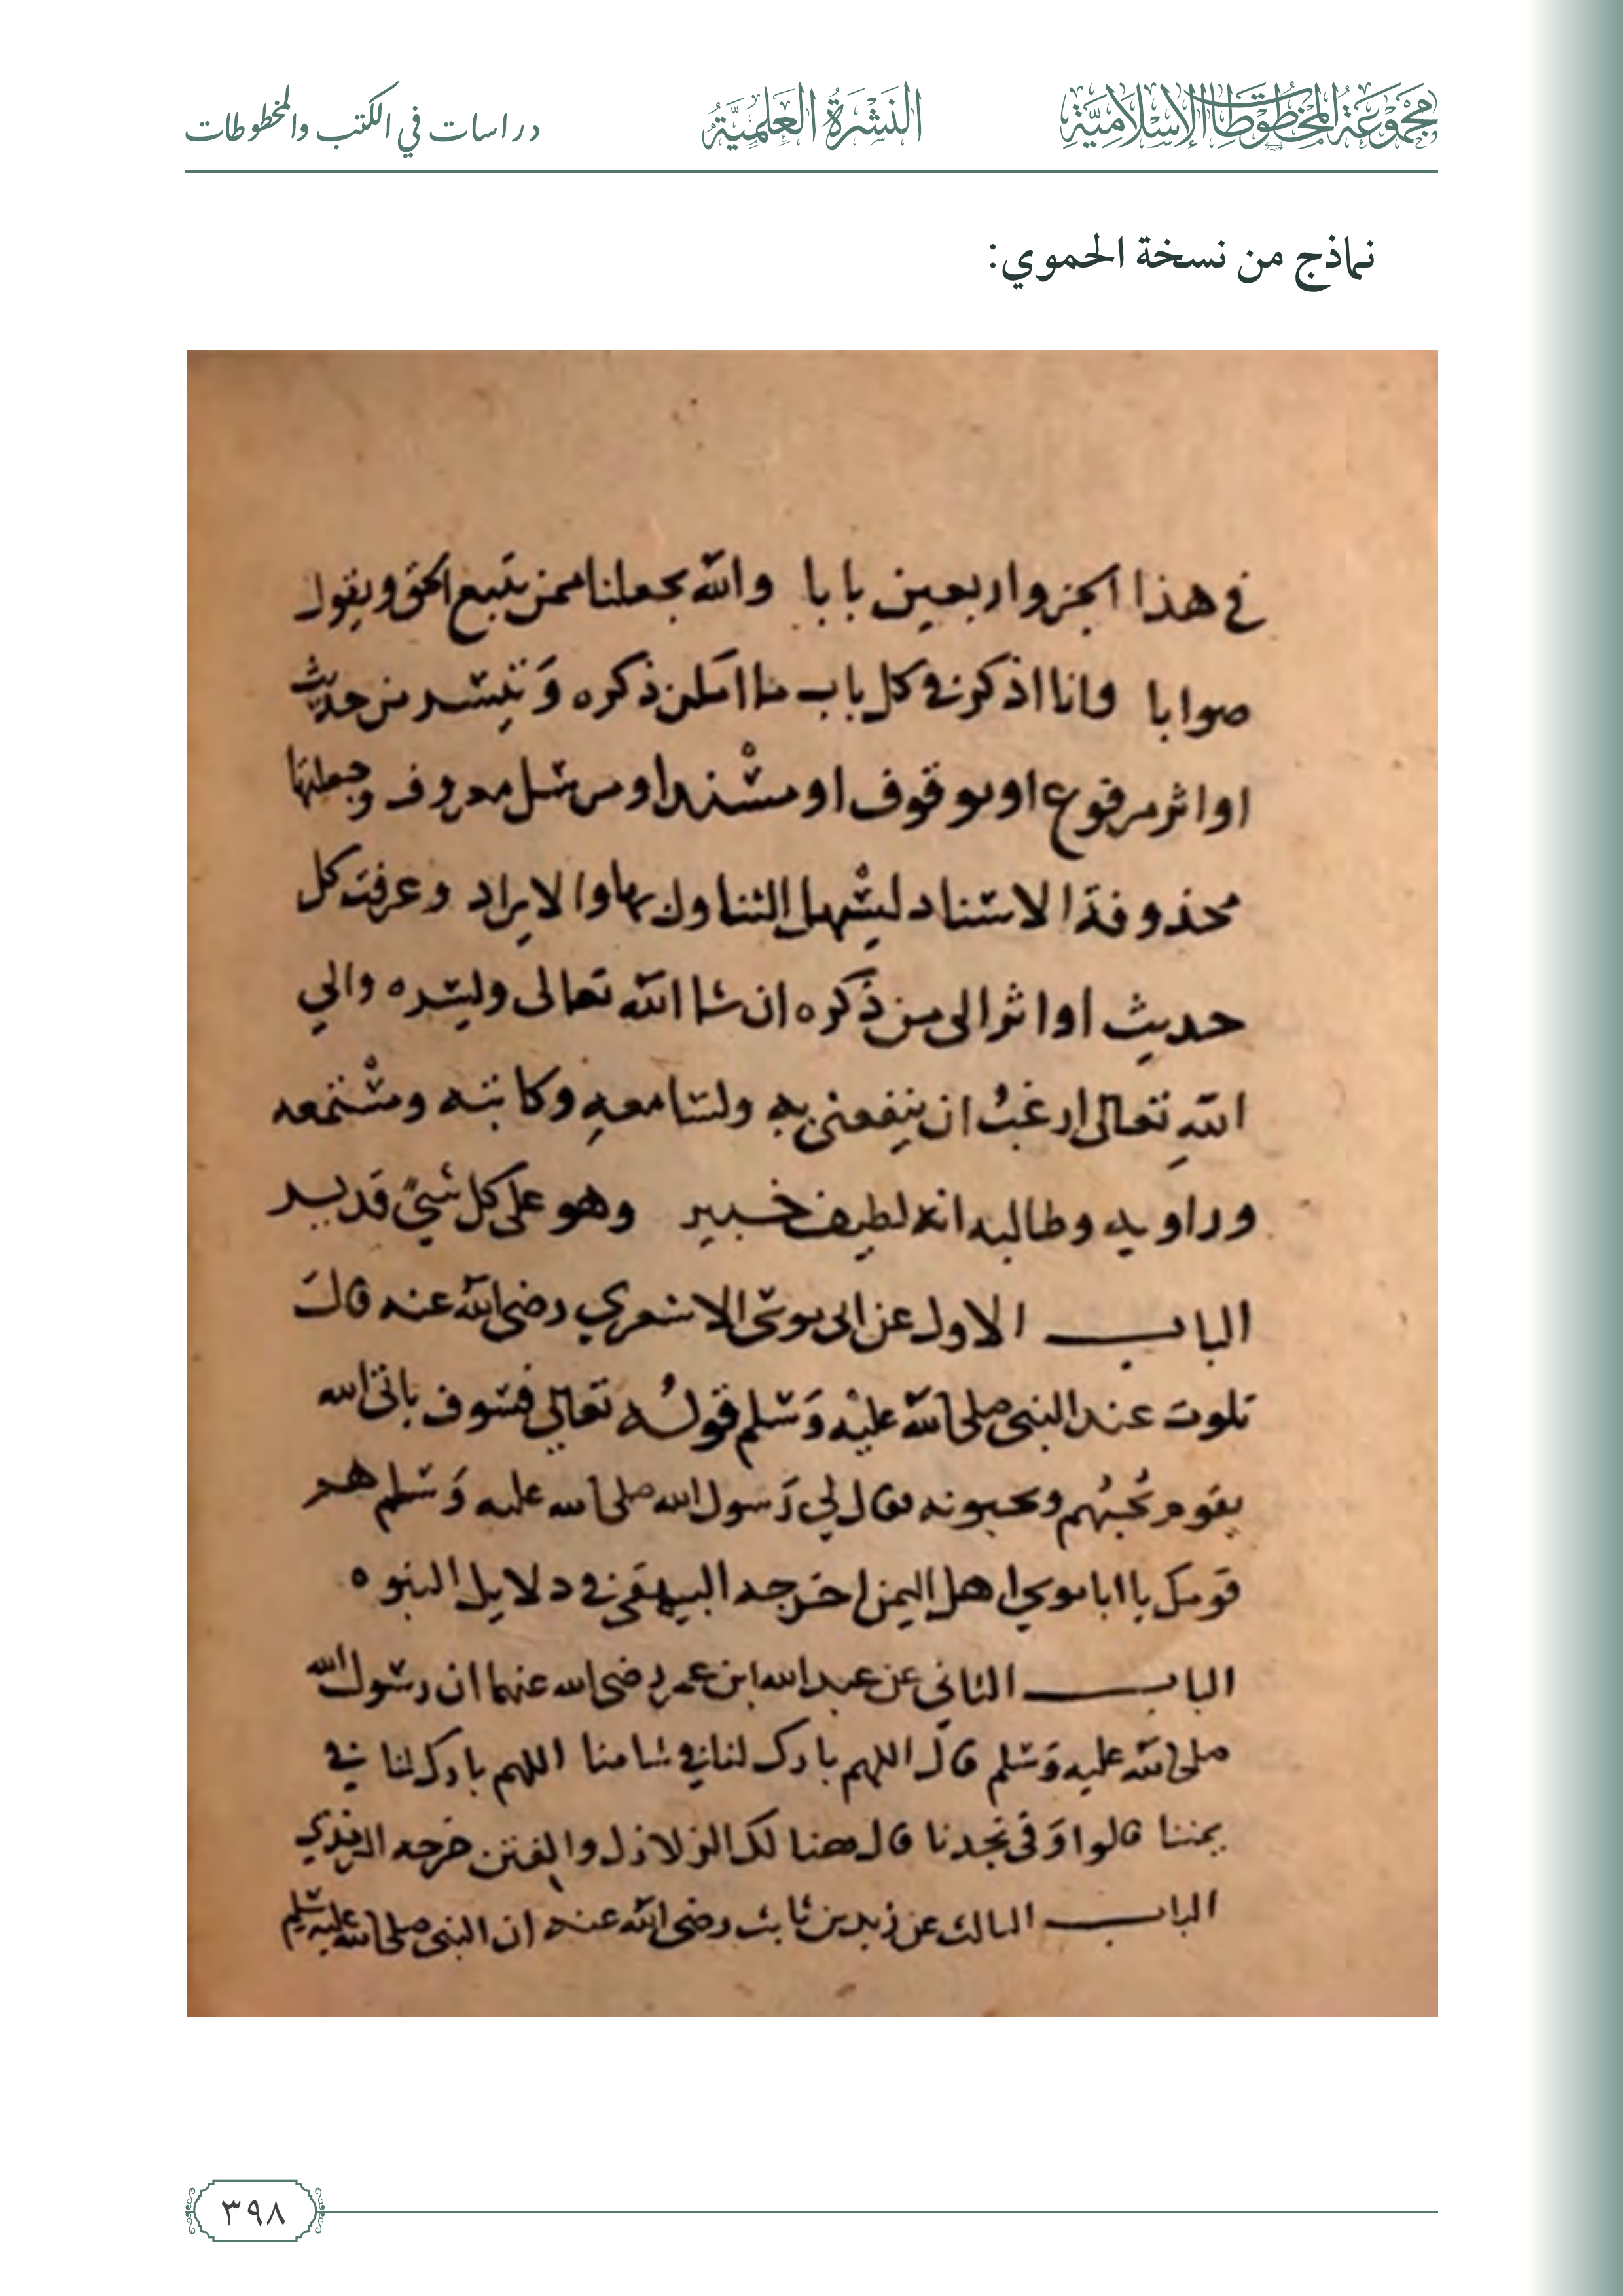 مجموعة المخطوطات الإسلامية
النشرة العلمية
دراسات في الكتب والمخطوطات
نماذج من نسخة الحموي:
في هذا الجزو اربعين بابا والله يجعلنا ممن يتبع الحق ويقول
صوابا وانا اذكر في كل باب ما امكن ذكره وتيسر من حديث
او اثر مرفوع او موقوف او مسند او مرسل معروف وجعلتها
محذوفة الاسناد ليسهل التناول بها والايراد وعرفت كل
حديث او اثر الى من ذكره ان شا الله تعالى وليسره والي
الله تعالى ارغب ان ينفعني به ولسامعه وكاتبه ومستمعه
وراويه وطالبه انه لطيف خبير وهو على كل شيء قدير
الباب الاول عن ابى موسى الاشعري رضي الله عنه قال
تلوت عند النبي صلى الله عليه وسلم قوله تعالى فسوف ياتى الله
بقوم يحبهم ويحبونه فقال لي رسول الله صلى الله عليه وسلم هم
قومك يا ابا موسي اهل اليمن اخرجه البيهقى في دلايل النبوه
الباب الثاني عن عبد الله ابن عمر رضى الله عنهما ان رسول الله
صلى الله عليه وسلم قال اللهم بارك لنا في شامنا اللهم بارك لنا في
يمننا قالوا وفي نجدنا قال هنا لك الزلازل والفتن خرجه الترمذي
الباب الثالث عن زيد بن ثابت رضى الله عنه ان النبى صلى الله عليه وسلم
٣٩٨